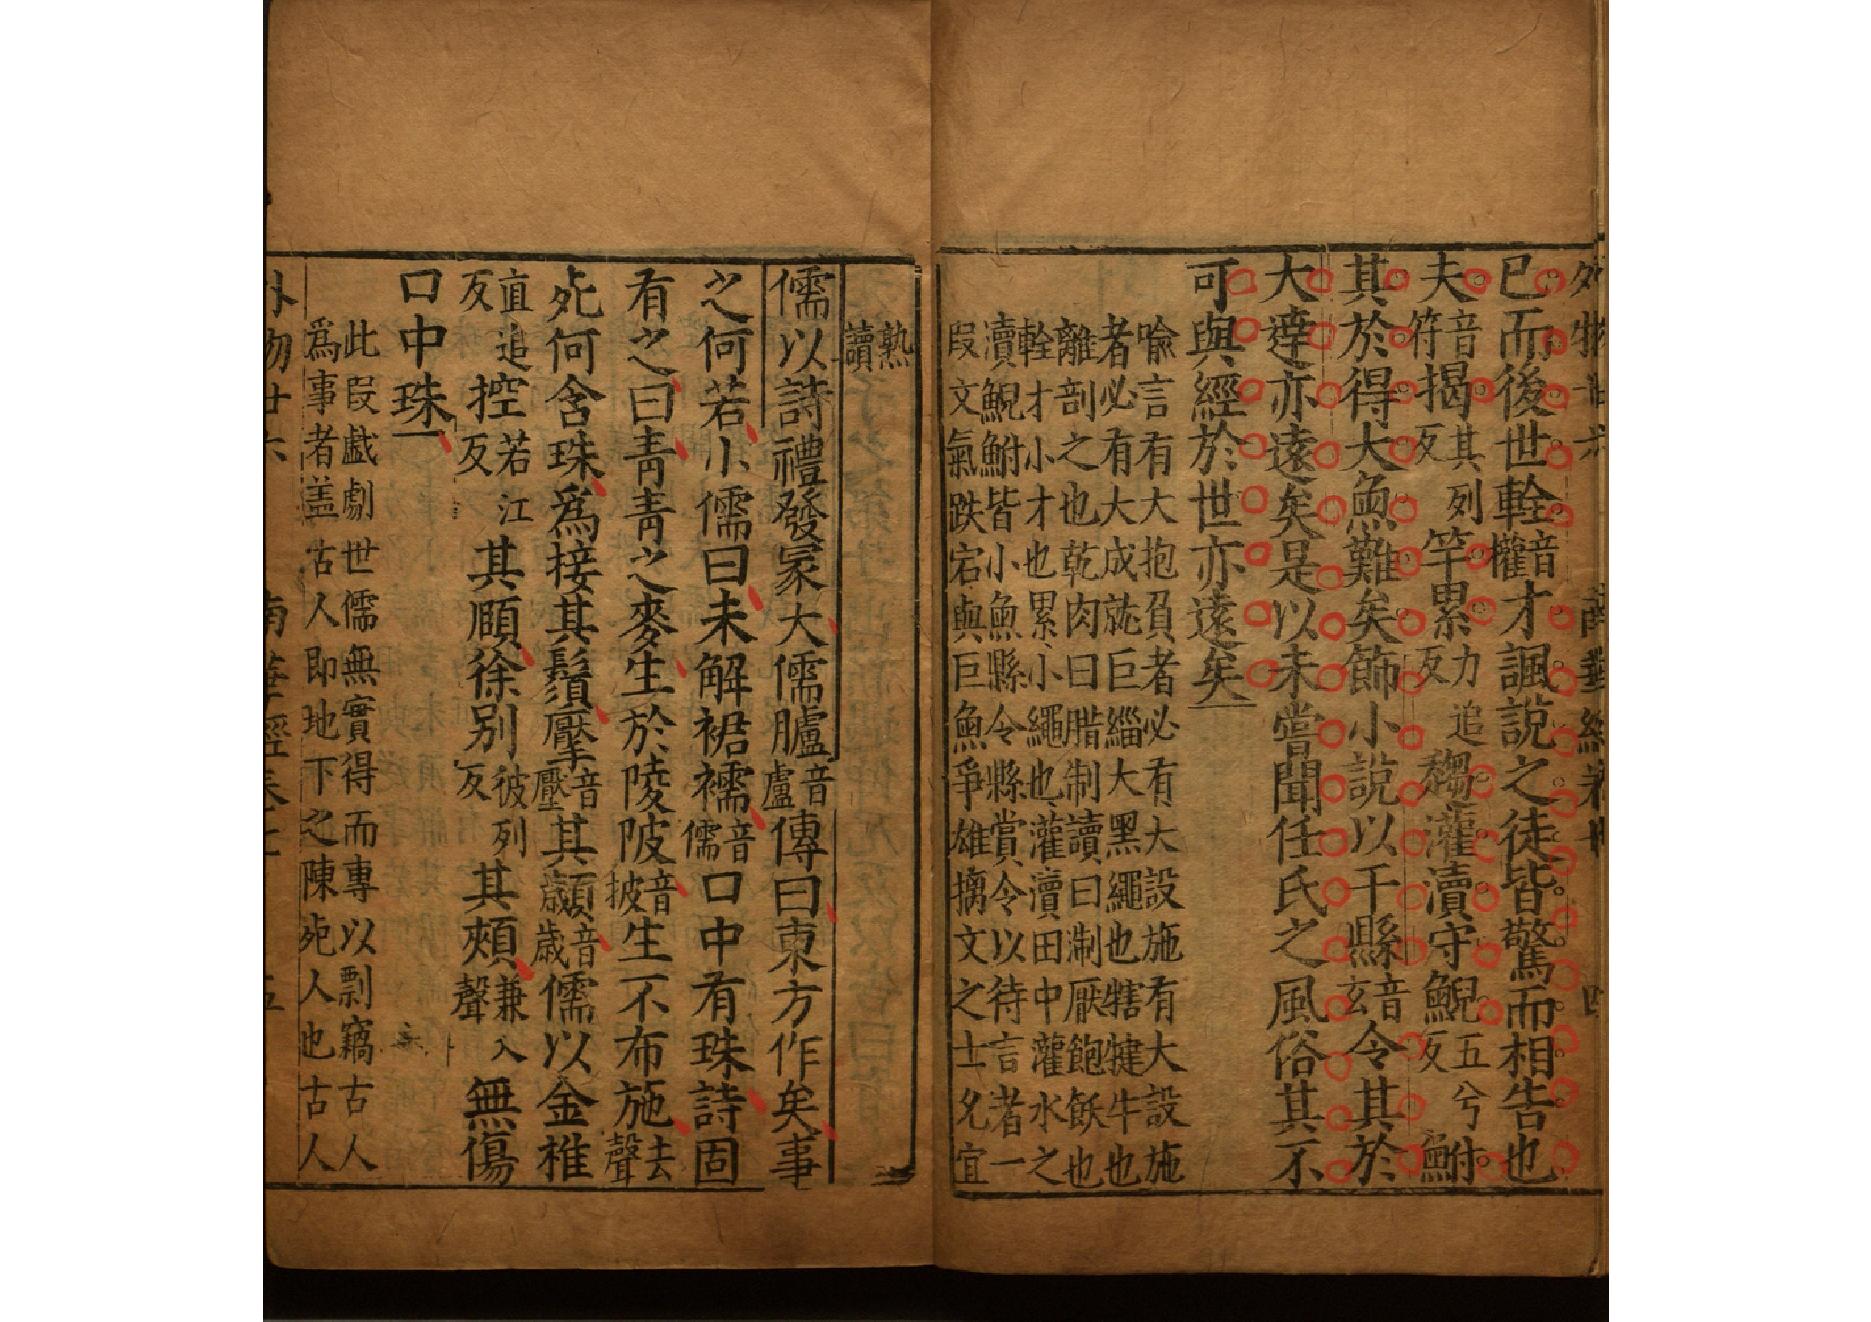 外物廿六
已而後世輇音權才諷說之徒皆驚而相告也
夫音符揭其列反竿累力追反趨灌瀆守鯢五兮反鮒
其於得大魚難矣飾小說以干縣音玄令其於
大達亦遠矣是以未嘗聞任氏之風俗其不
可與經於世亦遠矣
喻言有大抱負者必有大設施有大設施
者必有大成就巨緇大黑繩也犗犍牛也
離剖之也乾肉曰腊制讀曰淛厭飽飫也
輇才小才也累小繩也灌瀆田中灌水之
瀆鯢鮒皆小魚縣令縣賞令以待言者一
叚文氣跌宕與巨魚爭雄摛文之士尤宜
熟讀
儒以詩禮發冢大儒臚音盧傳曰東方作矣事
之何若小儒曰未解裙襦音儒口中有珠詩固
有之曰青青之麥生於陵陂音披生不布施去聲
死何含珠爲接其鬢壓音壓其顪音歲儒以金椎
控直追反若江反其頤徐別彼列反其頰兼入聲無傷
口中珠
此叚戲劇世儒無實得而專以剽竊古人
爲事者盖古人即地下之陳死人也古人
外物廿六 南華經卷七 五